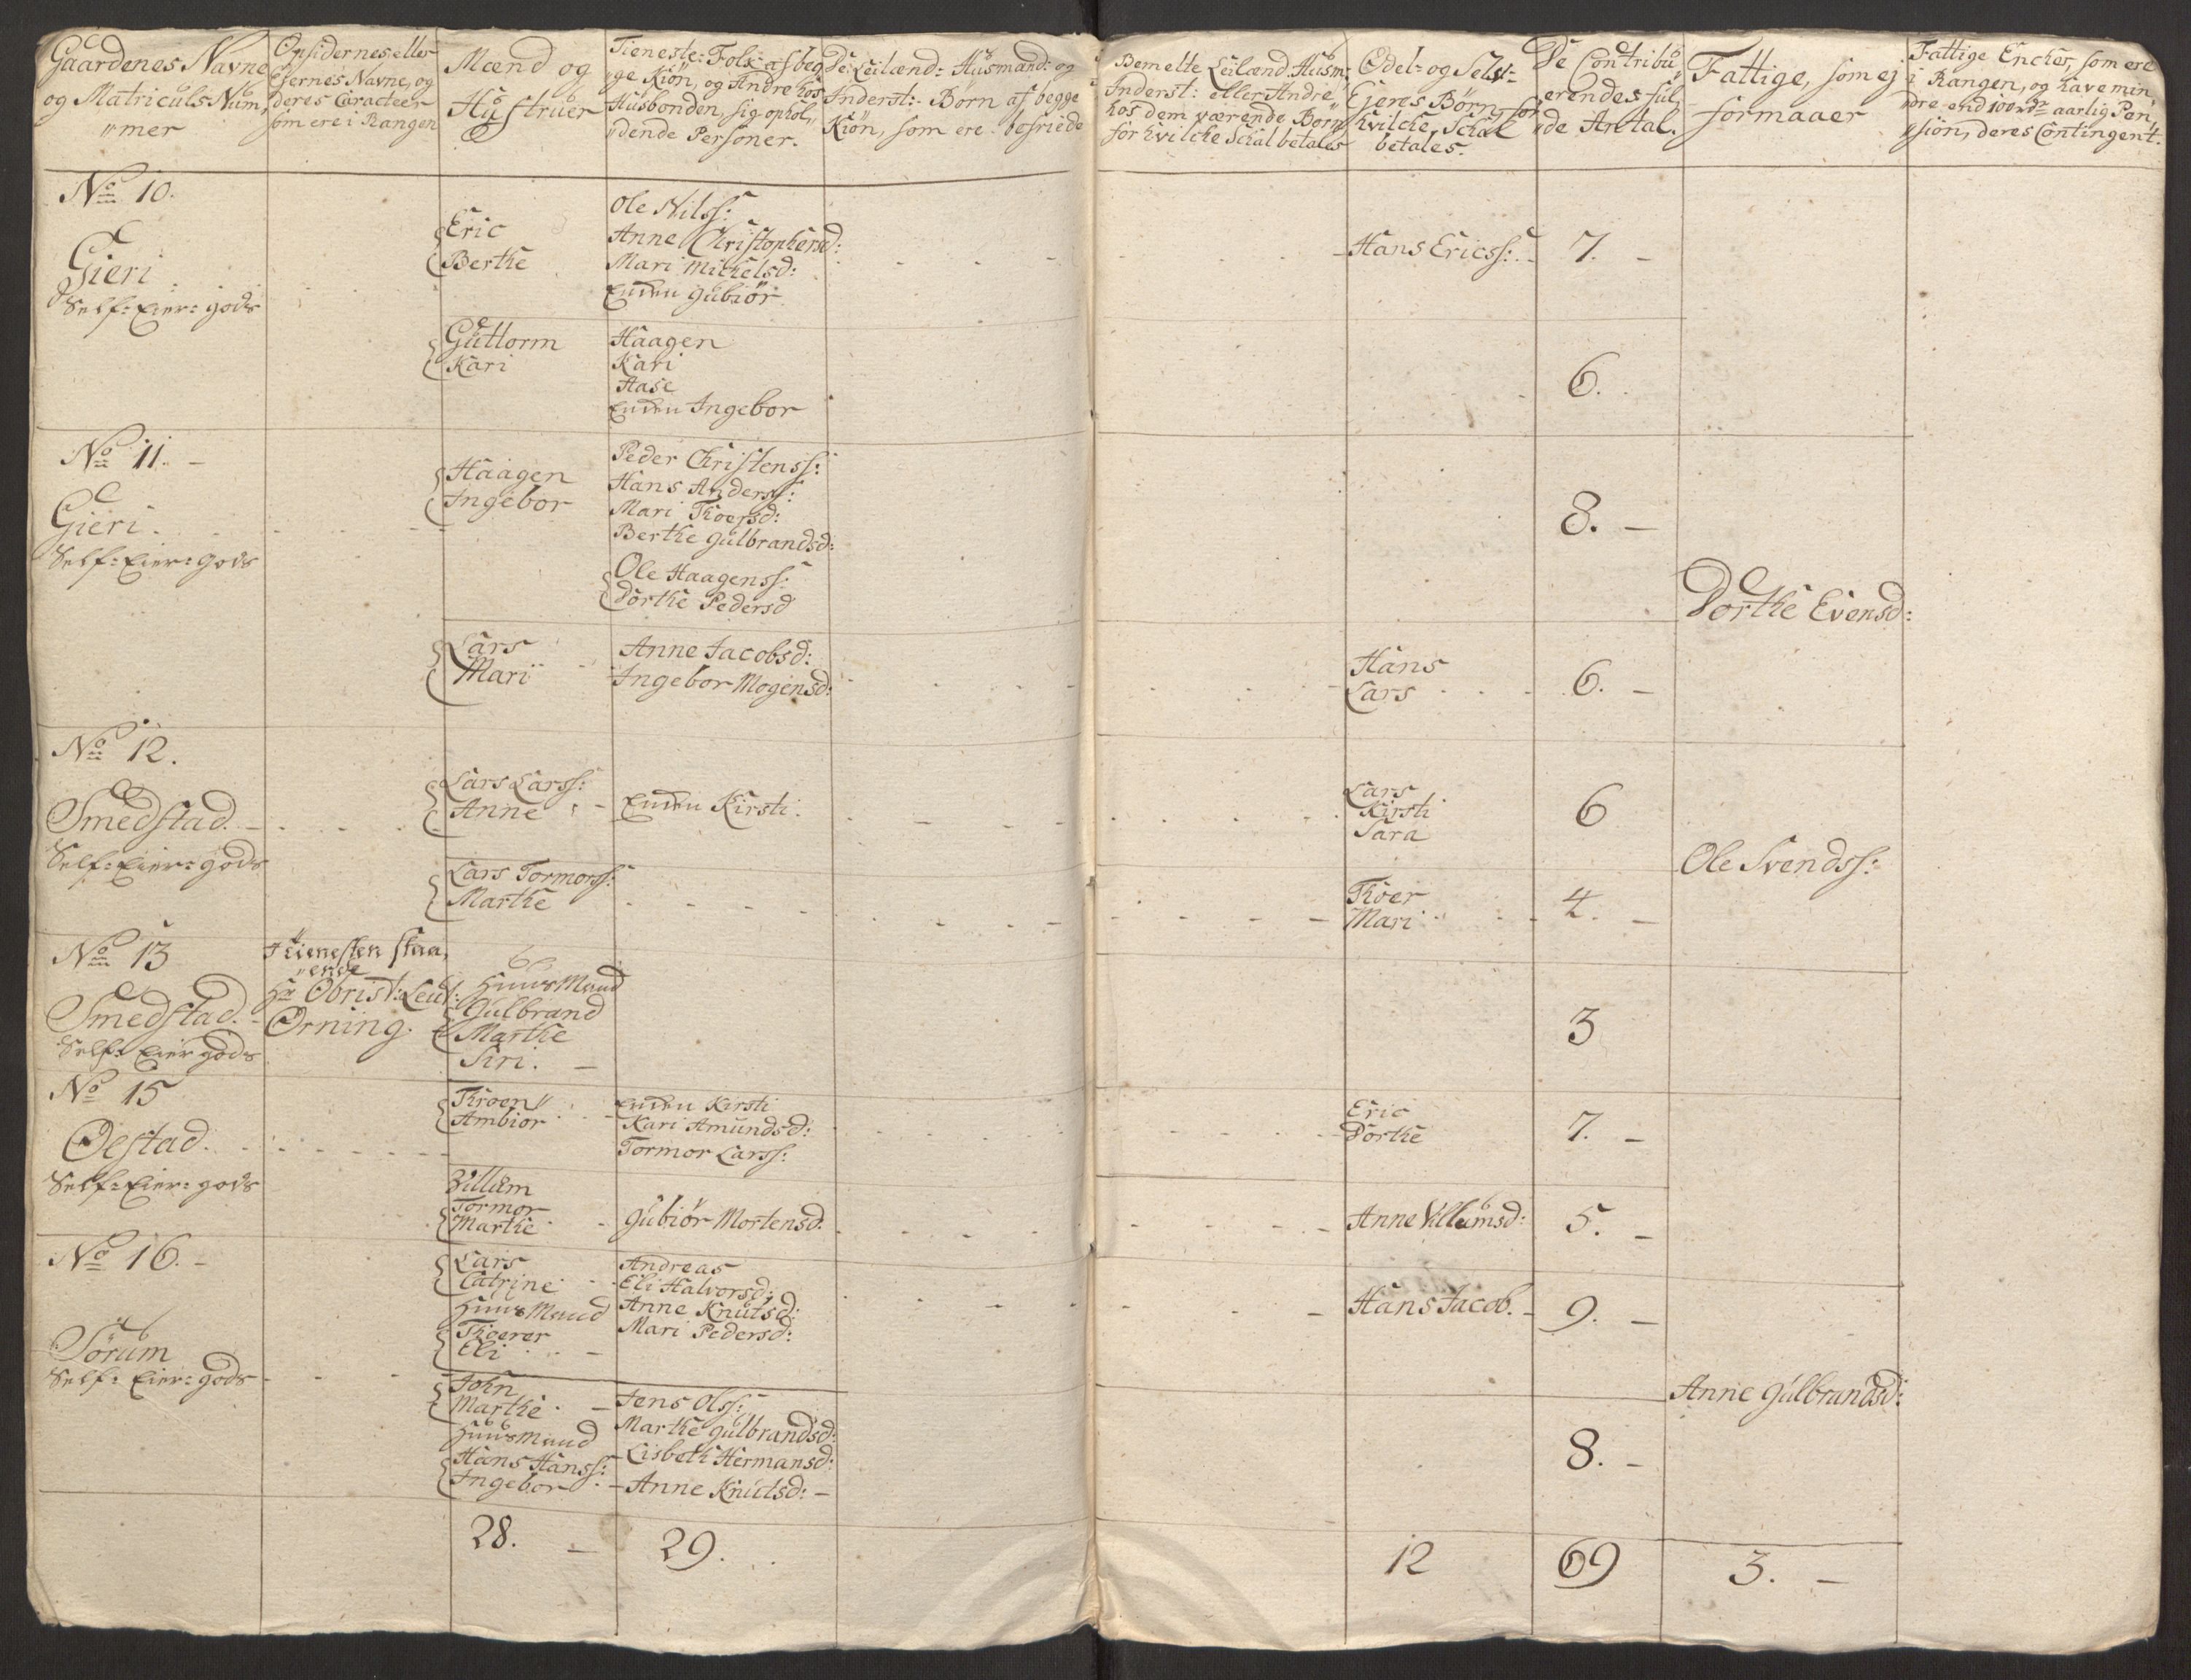 Gaardenes Navne
og Matriculs Num,,
,,mer
Opsidernes eller
Ejernes Navne, og
deres Caracteer
som ere i Rangen
Mænd og
Hustruer
Tieneste-Folk af beg,,
,,ge Kiön, og Andre hos
Husbonden, sig ophol,,
,,dende Personer.
De: Leilænd: Husmænd: og
Inderst:- Börn af begge
Kiön, som ere befriede
Bemelte Leilænd. Husm:
Inderst: eller Andre
hos dem værende Börn
for hvilcke Skal betales
Odel- og Selv-
Ejeres Börn, for
hvilcke, Skal
betales.
De Contribu
erendes ful,,
,,de Antal.
Fattige, som ej
formaaer
Fattige Encker, som ere
i Rangen, og have min,,
,,dre end 100 rdr aarlig Pen,,
,,sion, deres Contingent.
No 10.
Gieri
Self-Eier-gods
Eric
Berthe
Ole Nilss:
Anne Christophersd:
Mari Michelsd:
Enken Gubiör
Hans Ericss:
7.
Guttorm
Kari
Haagen
Kari
Aase
Enken Ingebor
6.
No 11.
Gieri
Self-Eier-Gods
Haagen
Ingebor
Peder Christenss:
Hans Anderss:
Mari Thoersd:
Berthe Gulbrandsd:
Ole Haagenss:
Dorthe Pedersd
8.
Dorthe Evensd:
Lars
Mari
Anne Jacobsd:
Ingebor Mogensd:
Hans
Lars
6.
No 12.
Smedstad.
Self-Eier-gods
Lars Larss:
Anne
Enken Kirsti.
Lars
Kirsti
Sara
6
Ole Svendss:
Lars Tormorss:
Marthe
Thoer
Mari
4.
No 13
Smedstad.
Self-Eier gods
I Tienesten staa,,
,,ende
Hr Obrist: Leut:
Örning.
HuusMand
Gulbrand
Marthe
Siri.
3
No 15
Oestad.
Self-Eier-gods
Throen
Ambiör
Enken Kirsti
Kari Amundsd:
Tormor Larss:
Eric
Dorthe
7.
Villum
Tormor
Marthe
Gubiör Mortensd.
Anne Villumsd:
5.
No 16.
Sörum
Self-Eier-gods
Lars
Catrine
HuusMand
Thoerer
Eli
Andreas
Eli Halvorsd:
Anne Knutsd:
Mari Pedersd:
Hans Jacob.
9.
John
Marthe
HuusMand
Hans Hanss:
Ingebor
Jens Olss:
Marthe Gulbrandsd:
Lisbeth Hermansd:
Anne Knutsd:
8.
Anne Gulbrandsd:
28.
29.
12
69
3.